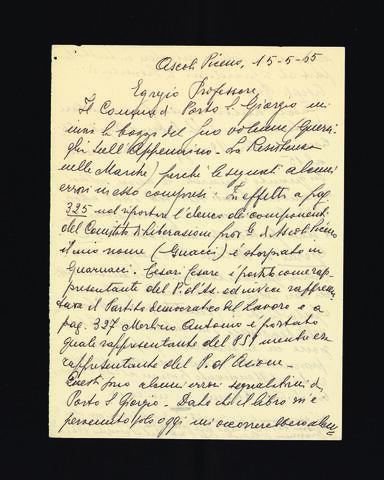 Ascoli Piceno, 15-5-65
Egregio Professore,
Il Comune di Porto S. Giorgio mi
invia le bozze del suo volume (Guerri-
glia sull'Appennino - La Resistenza
nelle Marche) perché le segnali alcuni
errori in esso compresi: In effetti a pag.
325 nel riportare l'elenco dei componenti
del Comitato di Liberazione prov. di Ascoli Piceno
il mio nome (Guacci) è storpiato in
Guarnacci. Tesari Cesare è portato come rap-
presentante del P. d'Az. ed invece rappresen-
tava il Partito democratico del Lavoro e a
pag. 327 Antonio è portato
quale rappresentante del PSI mentre era
rappresentante del P. d'Azione -
Questi sono alcuni errori segnalatimi da
Porto S. Giorgio - Dato che il libro mi è
pervenuto solo oggi mi occorrerebbero alcu=